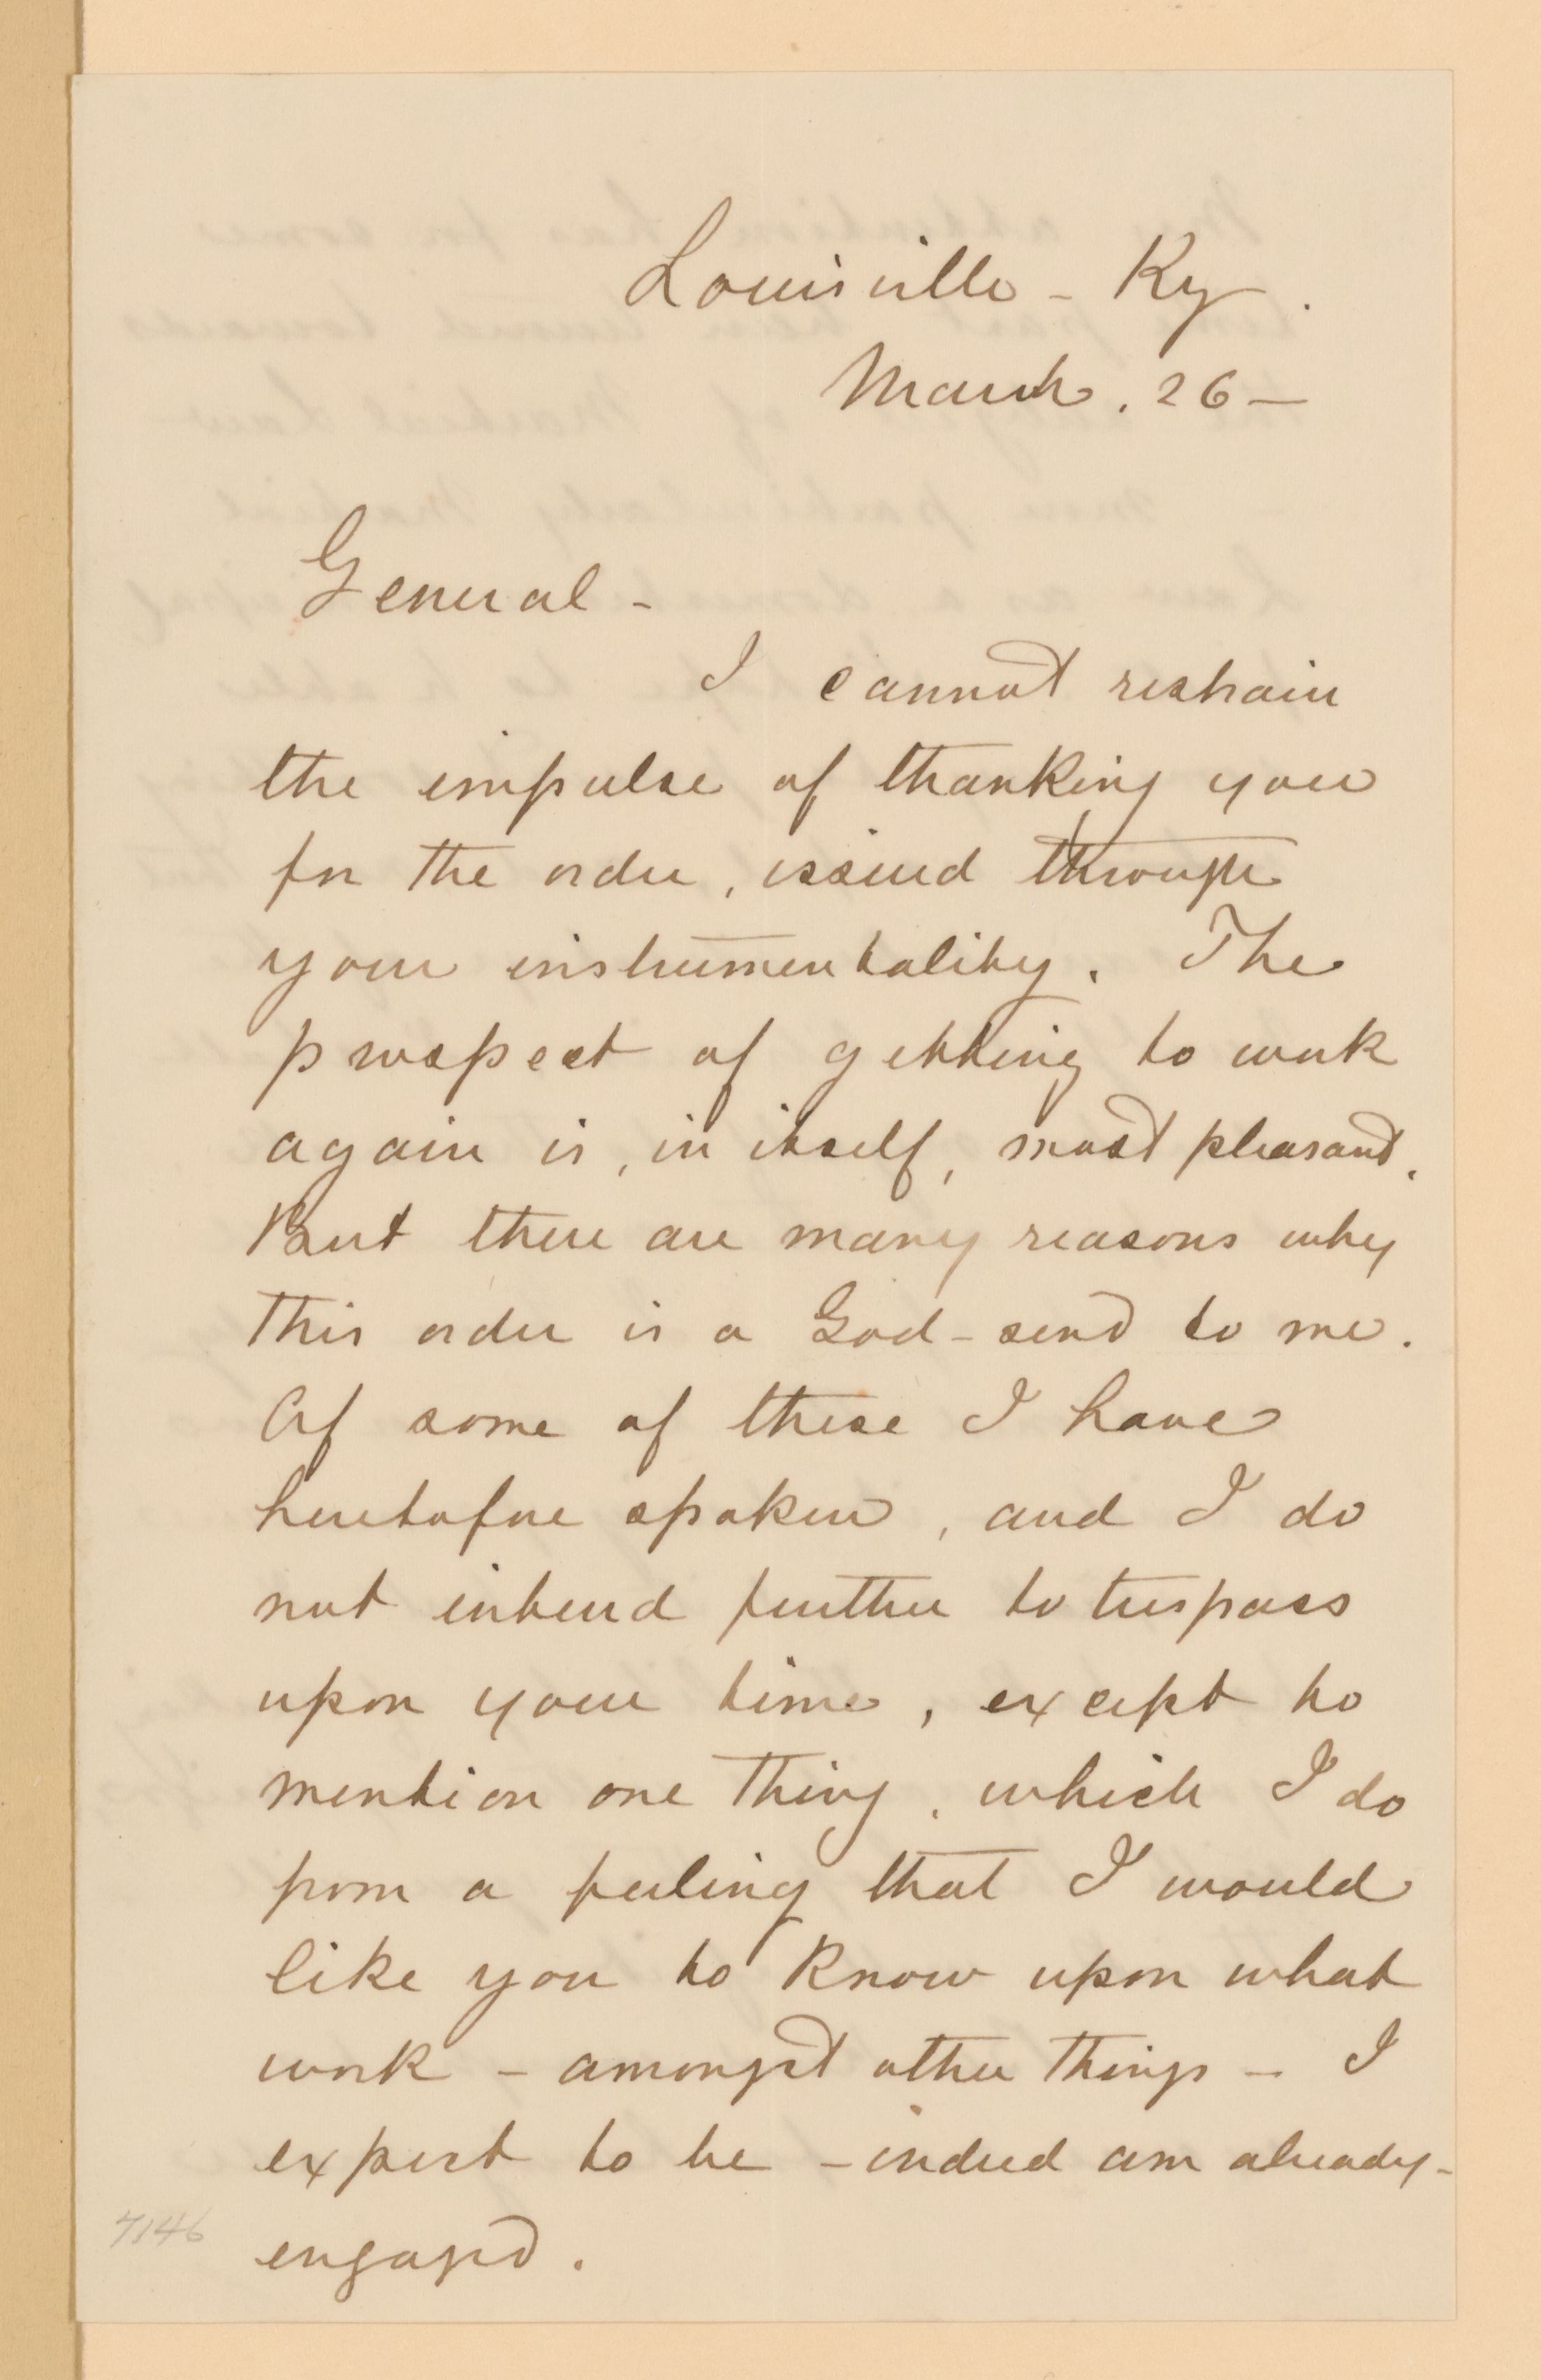 Louisville - Ky.
March. 26 -
General -
I cannot restrain
the impulse of thanking you
for the order, issued through
your instrumentality. The
prospect of getting to work
again is, in itself, most pleasant.
But there are many reasons why
this order is a God-send to me.
Of some of these I have
heretofore spoken, and I do
not intend further to trespass
upon your time, except to
mention one thing, which I do
from a feeling that I would
like you to know upon what
work - amongst other things - I
expect to be - indeed am already -
engaged.
7146